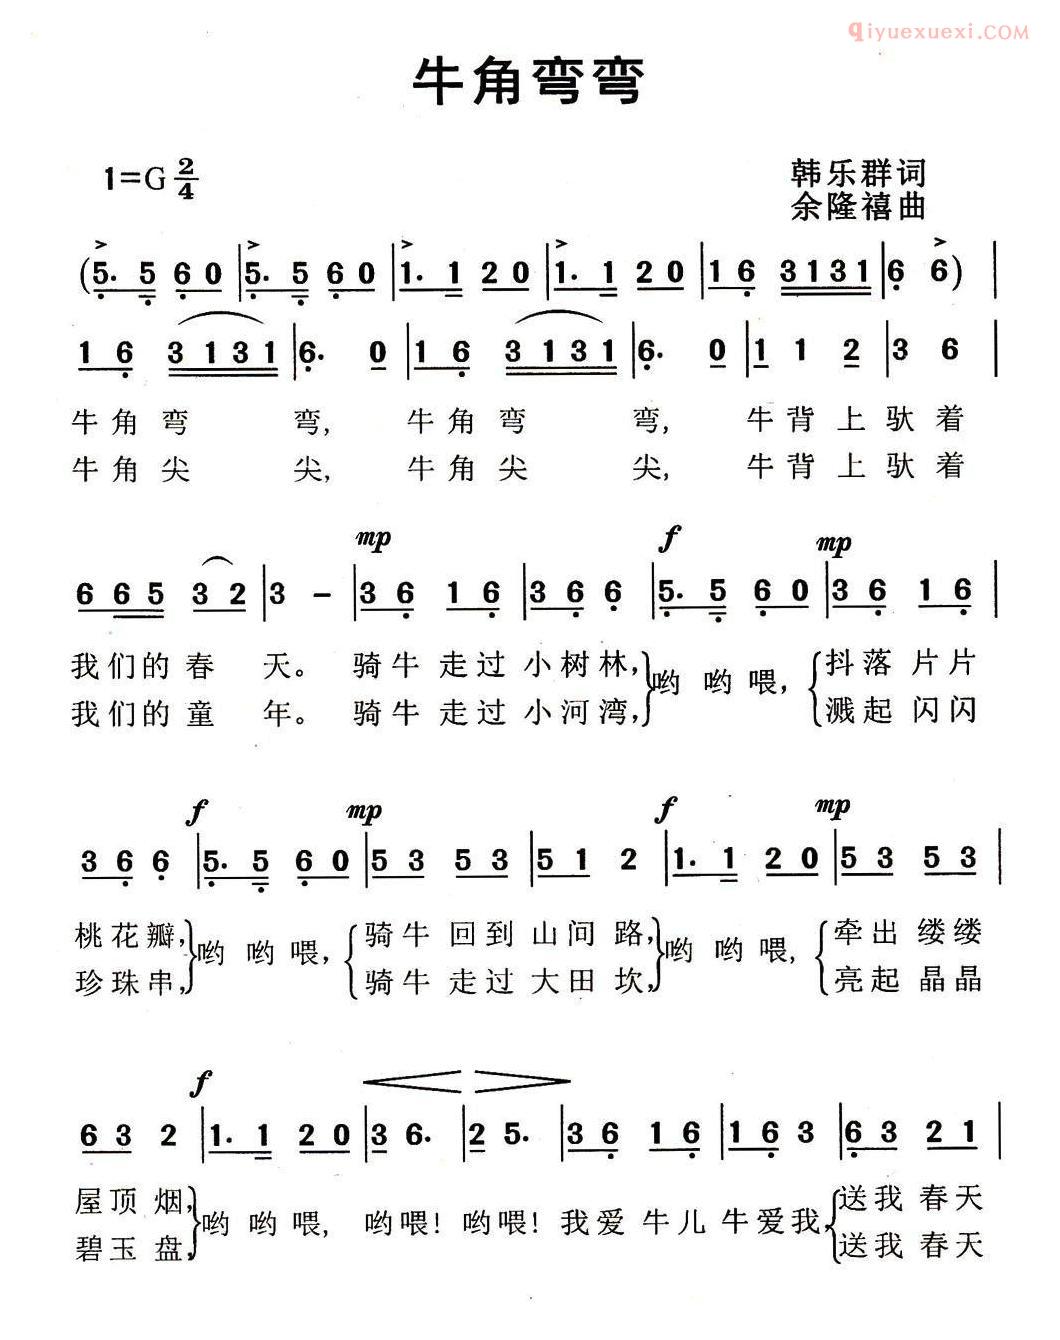 qiyuexuexi.COM
牛角弯弯
1=G 2/4
韩乐群词
余隆禧曲
(5. 5 6 0 | 5. 5 6 0 | 1. 1 2 0 | 1. 1 2 0 | 1 6 3 1 3 1 | 6 6) |
1 6 3 1 3 1 | 6. 0 | 1 6 3 1 3 1 | 6. 0 | 1 1 2 | 3 6 |
牛角弯 弯, 牛角弯 弯, 牛背上驮着
牛角尖 尖, 牛角尖 尖, 牛背上驮着
mp f mp
6 6 5 3 2 | 3 – | 3 6 1 6 | 3 6 6 | 5. 5 6 0 | 3 6 1 6 |
我们的春 天。 骑牛 走过 小树林, 哟 哟 喂, 抖落 片片
我们的童 年。 骑牛 走过 小河湾, 溅起 闪闪
f mp f mp
3 6 6 | 5. 5 6 0 | 5 3 5 3 | 5 1 2 | 1. 1 2 0 | 5 3 5 3 |
桃花瓣, 哟 哟 喂, 骑牛 回到 山间 路, 哟 哟 喂, 牵出 缕缕
珍珠串, 骑牛 走过 大田 坎, 亮起 晶晶
f
6 3 2 | 1. 1 2 0 | 3 6. | 2 5. | 3 6 1 6 | 1 6 3 | 6 3 2 1 |
屋顶 烟, 哟 哟 喂, 哟喂! 哟喂! 我爱 牛儿 牛爱我, 送我 春天
碧玉 盘, 送我 春天